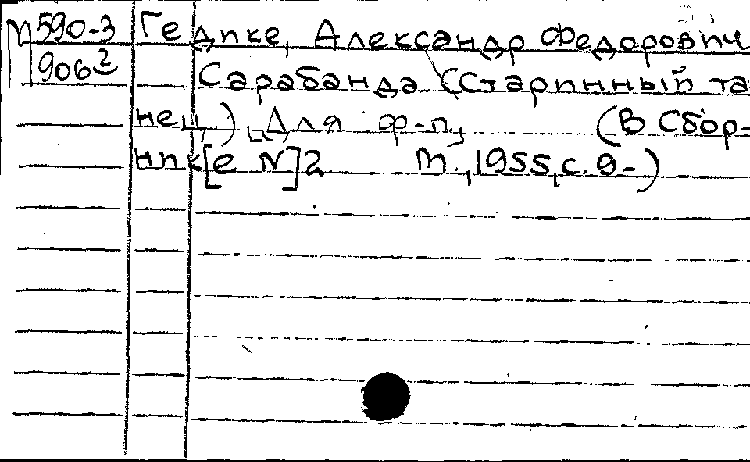 М 590-3 Гедике, Александр Федорович
906² Сарабанда (Старинный та-
нец) [Для ф-п] (В Сбор-
нике [е N] 2 М., 1955, с. 9-)